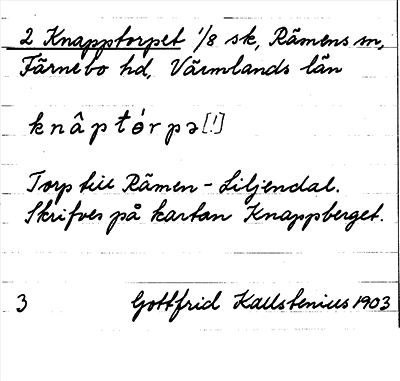 2 Knapptorpet 1/8 sk, Rämens sn,
Färnebo hd, Värmlands län
knâptórpə [!]
Torp till Rämen - Liljendal.
Skrifves på kartan Knappberget.
3 Gottfrid Kallstenius 1903